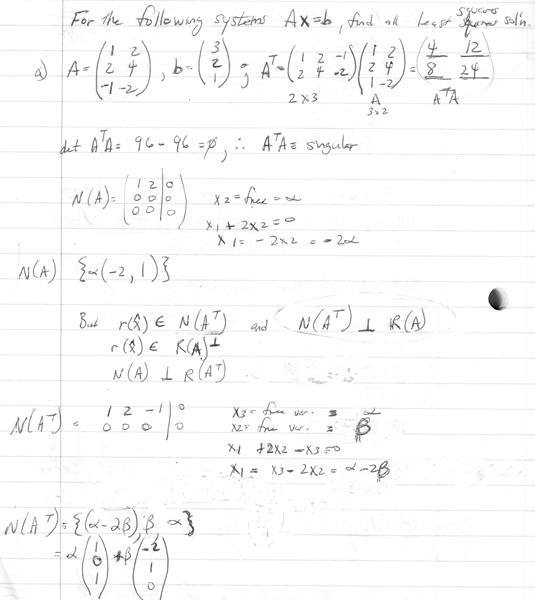 For the following systems Ax=b, find all least squares sol'n.
a) A = (1 2; 2 4; -1 -2), b = (3; 2; 1) ; A^T = (1 2 -1; 2 4 -2) (1 2; 2 4; 1 -2) = (4 12; 8 24)
2x3 A 3x2 A^TA
det A^TA = 96 - 96 = 0, ∴ A^TA = singular
N(A) = (1 2 | 0; 0 0 | 0; 0 0 | 0) x2 = free = α
x1 + 2x2 = 0
x1 = -2x2 = -2α
N(A) {α(-2, 1)}
But r(x̂) ∈ N(A^T) and N(A^T) ⊥ R(A)
r(x̂) ∈ R(A)⊥
N(A) ⊥ R(A^T)
N(A^T) = 1 2 -1 | 0; 0 0 0 | 0 x3 = free var. = α
x2 = free var. = β
x1 + 2x2 - x3 = 0
x1 = x3 - 2x2 = α - 2β
N(A^T) = {(α-2β), β, α}
= α (1; 0; 1) + β (-2; 1; 0)